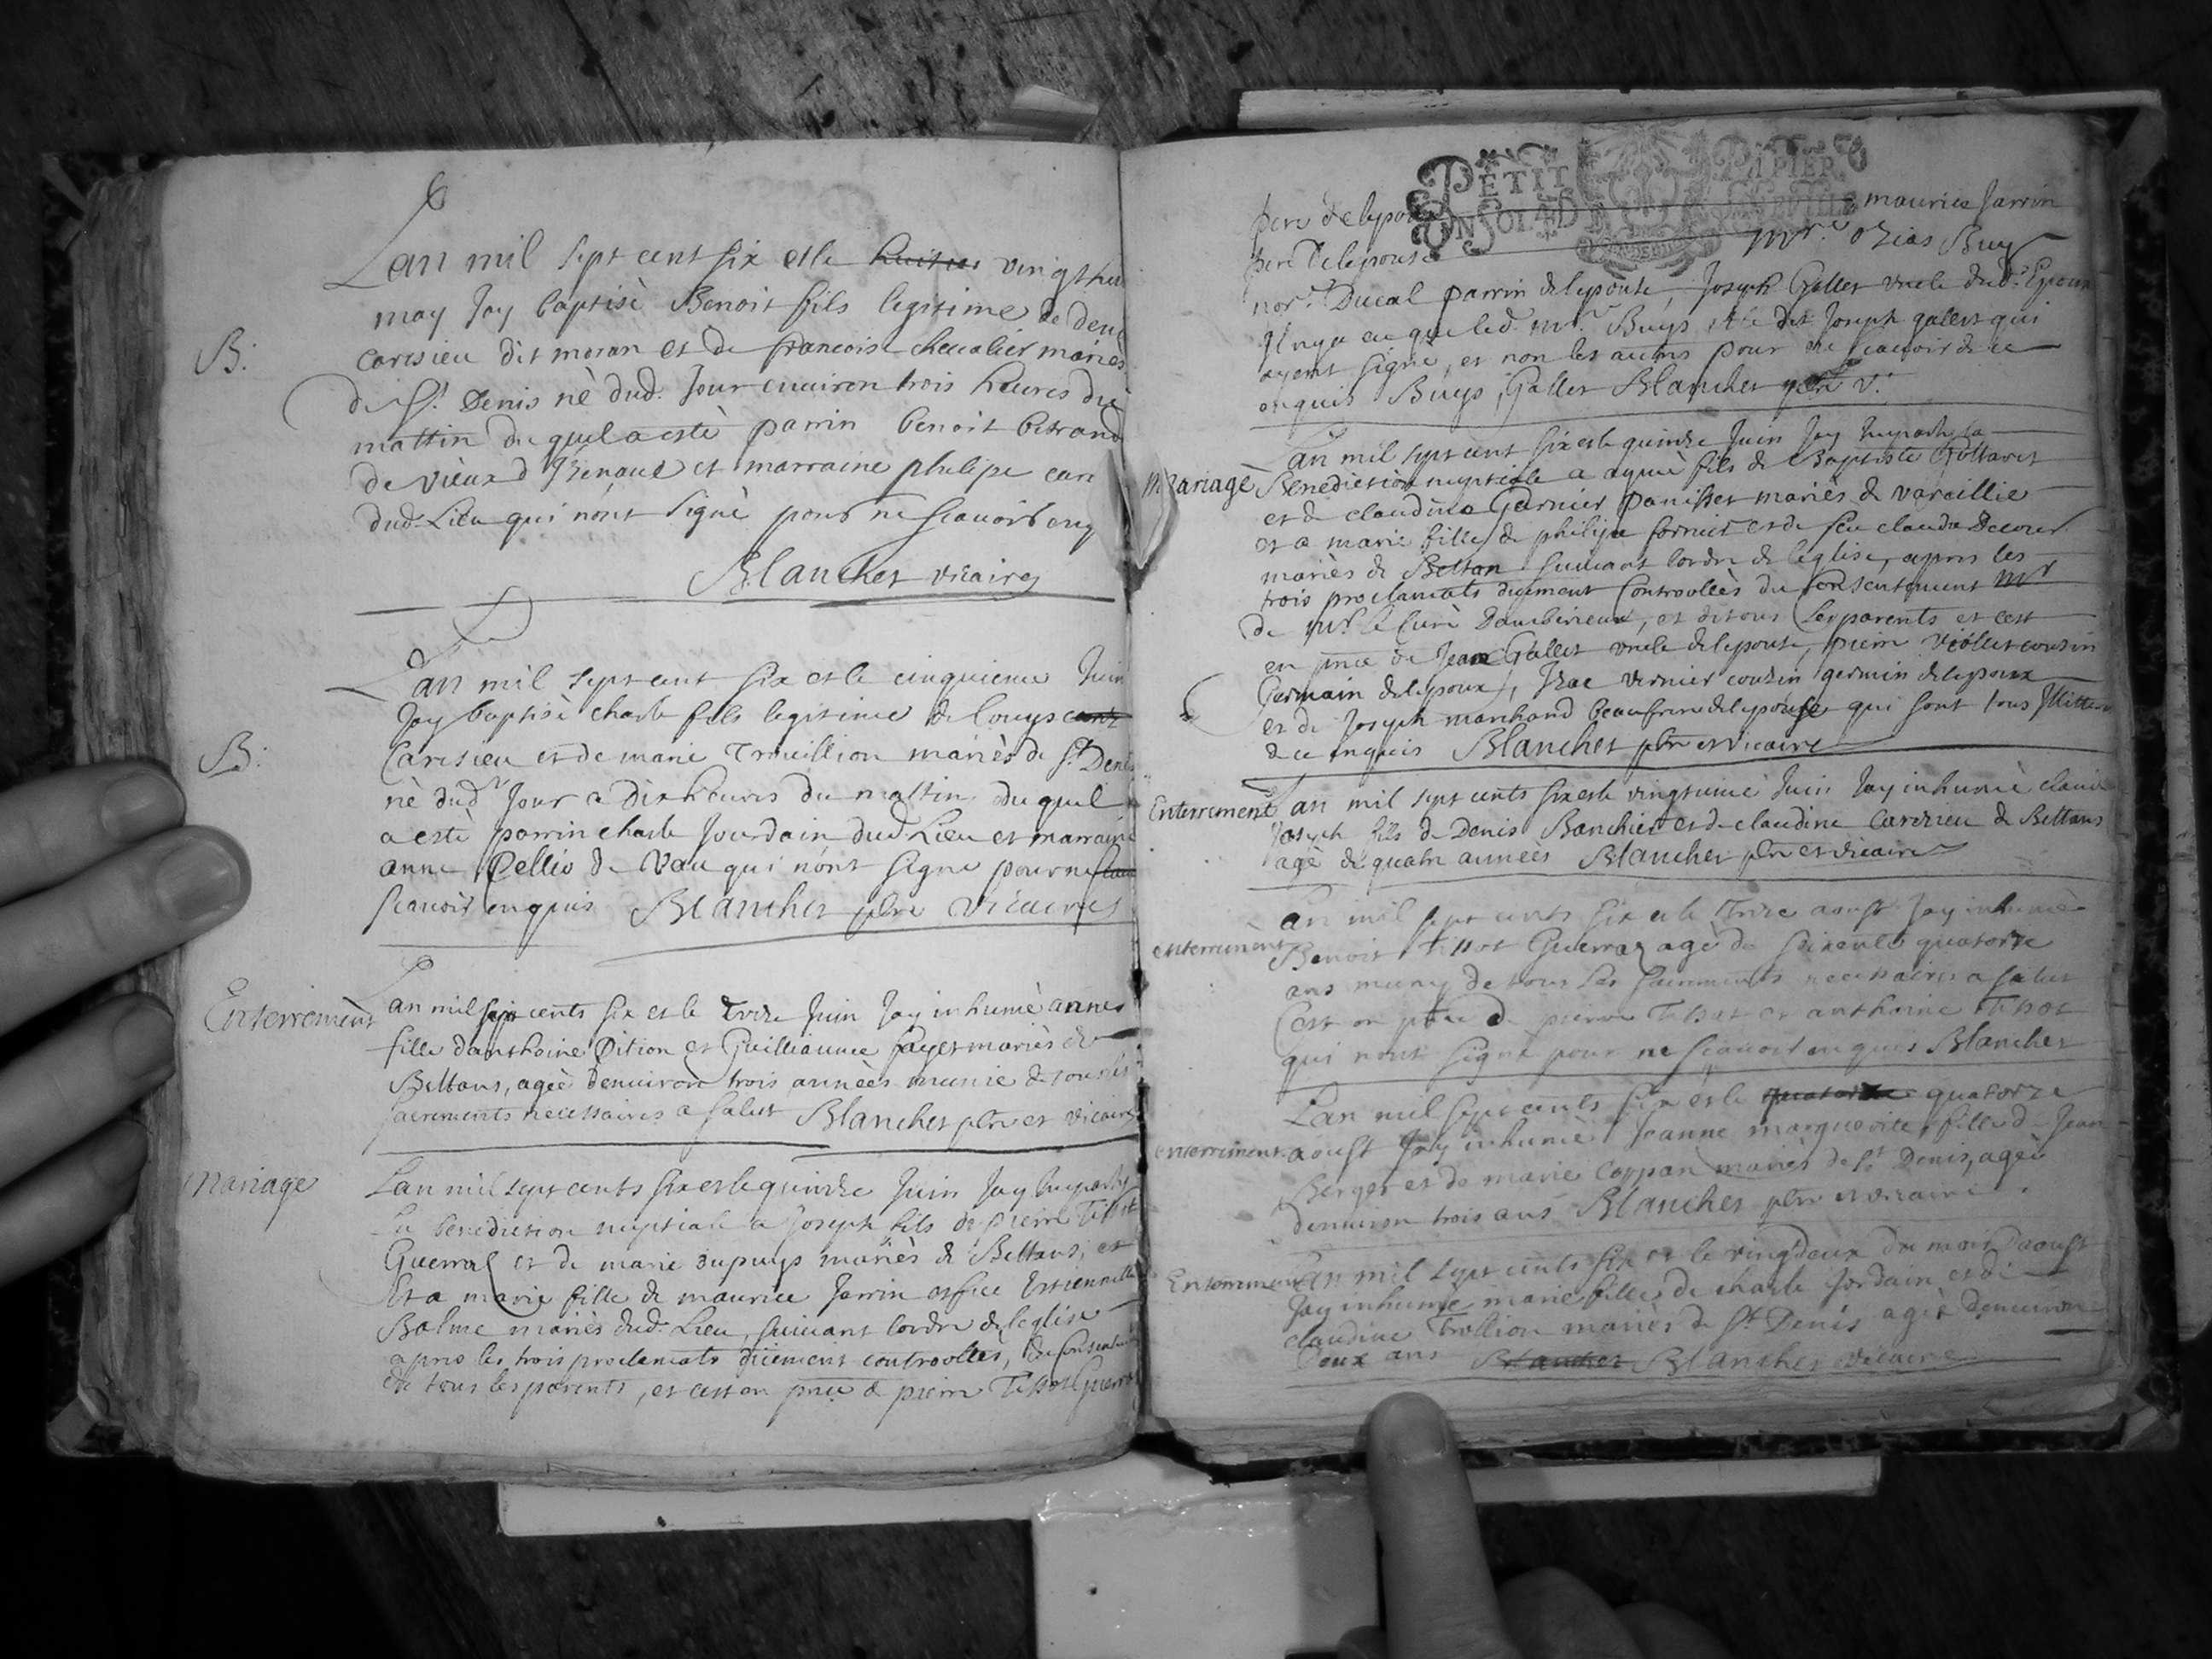 Lan mil sept cent six et le huities vingthui
may Jay baptisè Benoit fils legitime de deni
B:
caresieu dit moran et de francoise chevalier mariès
de St Denis nè dud. Jour environ trois heures du
mattin du quel a estè parrin benoit betrand
de vieux d et marraine philipe care
dud. Lieu qui nónt signè pour ne scavoir enq
Blanchet vicaire
Lan mil sept cent six et le cinquieme Juin
Jay baptisè charle fils legitime de louys
B:
Caresieu et de marie Trouillion mariès de St Denis
nè dudt Jour a dix heures du mattin duquel
a estè parrin charle Jourdain dud. Lieu et marraine
anne Pellio de Vau qui nónt signe pour ne
scavoir enquis Blanchet pbre vicaire
Enterrement
Lan mil sept cents six et le treze Juin Jay inhumè anne
fille danthoine Pition et Guilliaume fayet mariès de
Bettans, ageè denviron trois annèes munie de tous les
sacrements necessaires a salut Blanchet pbre et vicaire
Mariage
Lan mil sept cents six et le quinze Juin Jay Imparty
la benediction nuptiale a Joseph fils de pierre Tissot
Guerraz et de marie dupuys mariès de Bettans, et
Et a marie fille de maurice Jarrin et feue Estiennette
Balme mariès dud. Lieu, suivant lordre de leglise
apres les trois proclamats düement controollès, du consentement
de tous les parents, et cest en pnce de pierre Tissot Guerraz
PETIT PAPIER
UN SOL 4 D
pere de lepoux maurice Jarrin
pere de lepouse Mre. ozias Buy
nore. Ducal parrin de lepouse, Joseph Gallet oncle dud. Epoux
Il ny a eu que led. mre. Buys et le dit Joseph gallet qui
ayent signè, et non les autres pour ne scavoir de ce
enquis Buys, Gallet Blanchet pbre v.
Mariagè
Lan mil sept cent six et le quinze Juin Jay Imparty la
Benediction nuptiale a aymè fils de Baptiste Gottaret
et de claudine Garnier panisset mariès de Vareillie
et a marie fille de philipe fornier et de feu claudie Decour
mariès de Bettan suivant lordre de leglise, apres les
trois proclamats duement Controollès du consentement mr
de Mr. le Curè Dambérieux, et de tous les parents et cest
en pnce de Jean Gallet oncle de lepouse, pierre Viollet cousin
Germain de lepoux, Isac vernier cousin germin de lepoux
et de Joseph marchand beaufrere de lepouse qui sont tous Illitter
de ce enquis Blanchet pbre et vicaire
Enterrement
Lan mil sept cents six et le vingtunie Juin Jay inhumè claude
Joseph fils de Denis Banchiet et de claudine Carezieu de Bettans
agè de quatre annèes Blanchet pbre et vicaire
enterrement
Lan mil sept cents six et le treze aoust Jay inhumè
Benoit Tissot Guerraz agè de soixente quatorze
ans muny de tous les sacrements necessaires a salut
Cest en pnce de pierre Tissot et anthoine Tissot
qui nont signe pour ne scavoir enquis Blanchet
enterrement
Lan mil sept cents six et le quatorze quatorze
aoust Jay inhumè Jeanne marguerite fille de Jean
Berger et de marie Coppan mariès de St Denis, ageè
denviron trois ans Blanchet pbre et vicaire
Enterrement
Lan mil sept cents six et le vingtdeux du mois Daoust
Jay inhumè marie fille de charle Jordain et de
claudine Trollion mariès de St Denis ageè denviron
Deux ans Blanchet Blanchet vicaire